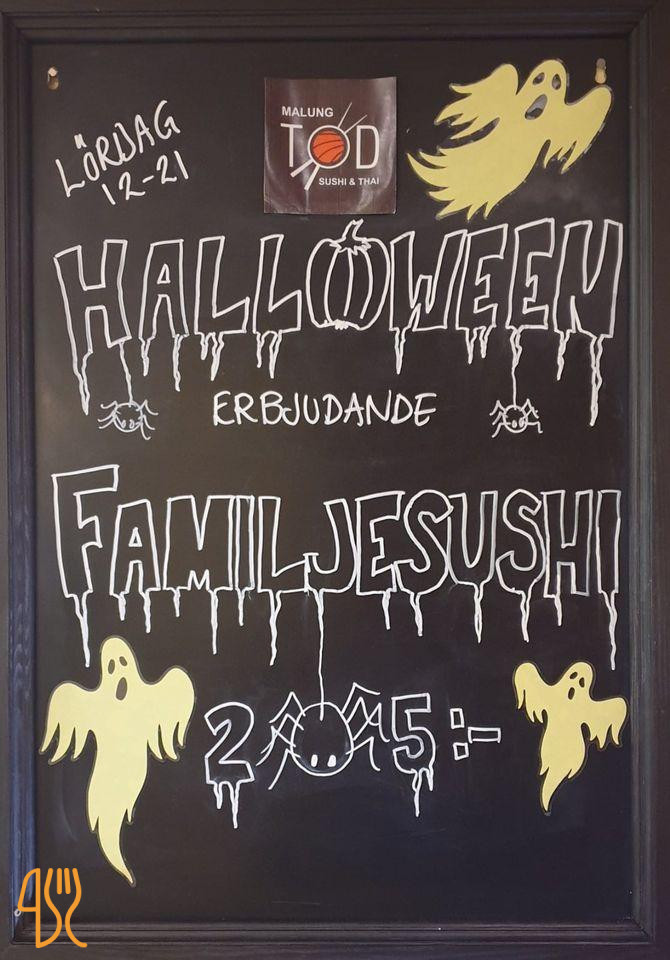 LÖRDAG
12-21
MALUNG
TOD
SUSHI & THAI
HALLOWEEN
ERBJUDANDE
FAMILJESUSHI
205:-